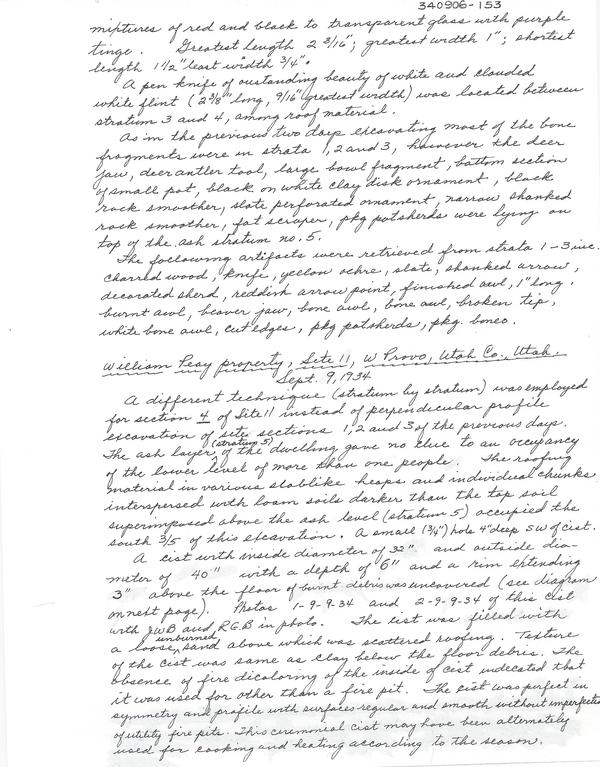 340906-153
mixtures of red and black to transparent glass with purple
tinge. Greatest length 2 3/16"; greatest width 1"; shortest
length 1 1/2" least width 3/4".
A pen knife of oustanding beauty of white and clouded
white flint (2 3/8" long, 9/16" greatest width) was located between
stratum 3 and 4, among roof material.
As in the previous two days excavating most of the bone
fragments were in strata 1, 2 and 3, however the deer
jaw, deer antler tool, large bowl fragment, bottom section
of small pot, black on white clay disk ornament, black
rock smoother, slate perforated ornament, narrow shanked
rock smoother, fat scraper, pkg potsherds were lying on
top of the ash stratum no. 5.
The following artifacts were retrieved from strata 1-3 inc.
charred wood, knife, yellow ochre, slate, shanked arrow,
decorated sherd, reddish arrow point, finished awl, 1" long.
burnt awl, beaver jaw, bone awl, bone awl, broken tip,
white bone awl, cut edges, pkg potsherds, pkg. bones.
William Peay property, Site 11, W Provo, Utah Co., Utah.
Sept. 9, 1934
A different technique (stratum by stratum) was employed
for section 4 of Site 11 instead of perpendicular profile
excavation of site sections 1, 2 and 3 of the previous days.
(stratum 5)
The ash layer, of the dwelling gave no clue to an occupancy
of the lower level of more than one people. The roofing
material in various slablike heaps and individual chunks
interspersed with loam soils darker than the top soil
superimposed above the ash level (stratum 5) occupied the
south 3/5 of this excavation. A small (3/4") hole 4" deep SW of cist.
A cist with inside diameter of 32" and outside dia-
meter of 40" with a depth of 6" and a rim extending
3" above the floor of burnt debris was uncovered (see diagram
on next page). Photos 1-9-9-34 and 2-9-9-34 of this cist
with JWB and RGB in photo. The cist was filled with
unburned
a loose, sand above which was scattered roofing. Texture
of the cist was same as clay below the floor debris. The
absence of fire dicoloring of the inside of cist indicated that
it was used for other than a fire pit. The cist was perfect in
symmetry and profile with surfaces regular and smooth without imperfections
of utility fire pits. This ceremonial cist may have been alternately
used for cooking and heating according to the season.